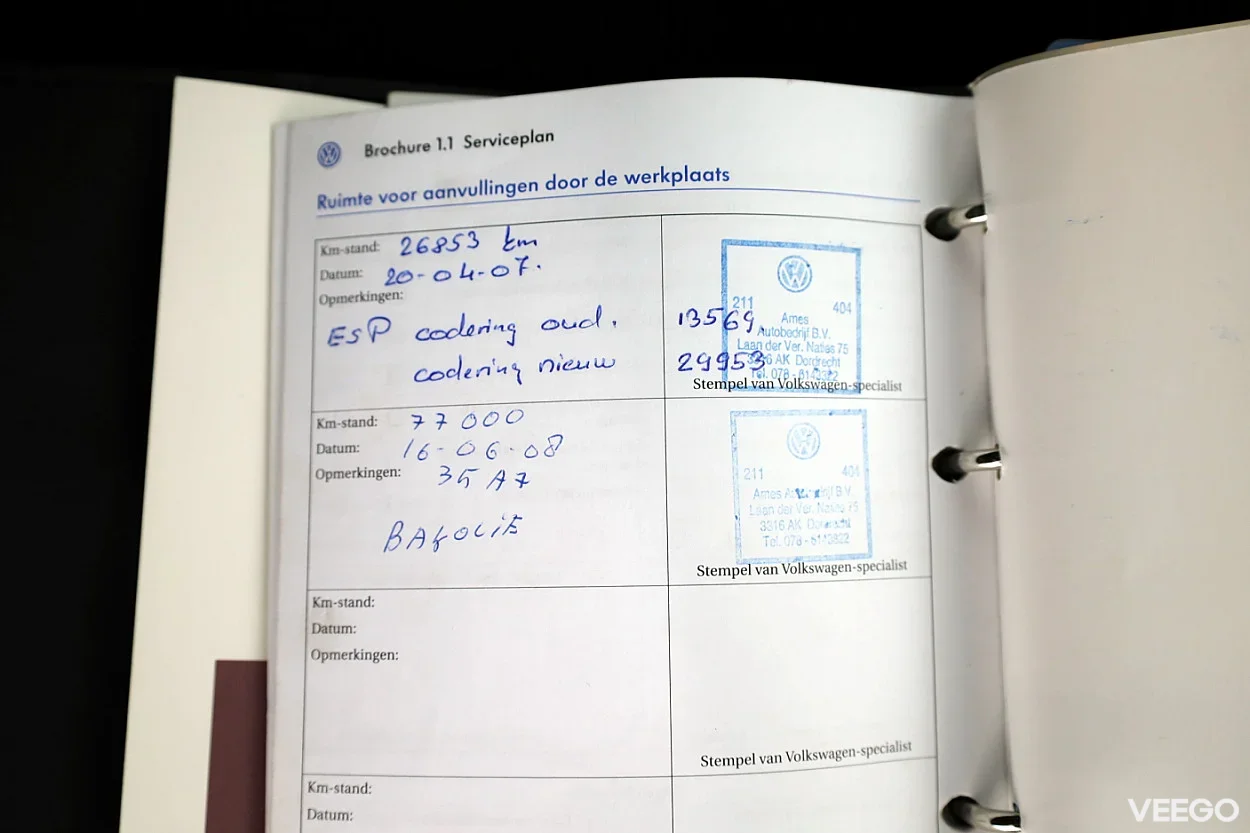 Brochure 1.1 Serviceplan
Ruimte voor aanvullingen door de werkplaats
Km-stand: 26853 km
Datum: 20-04-07.
Opmerkingen:
ESP codering oud. 13569
codering nieuw 29953
211 404
Ames
Autobedrijf B.V.
Laan der Ver. Naties 75
3316 AK Dordrecht
Tel. 078 - 6142322
Stempel van Volkswagen-specialist
Km-stand: 77000
Datum: 16-06-08
Opmerkingen: 35 A7
BAKOLIE
211 404
Ames B.V.
Laan der Ver. Naties 75
3316 AK Dordrecht
Tel. 078 -
Stempel van Volkswagen-specialist
Km-stand:
Datum:
Opmerkingen:
Stempel van Volkswagen-specialist
Km-stand:
Datum:
VEEGO